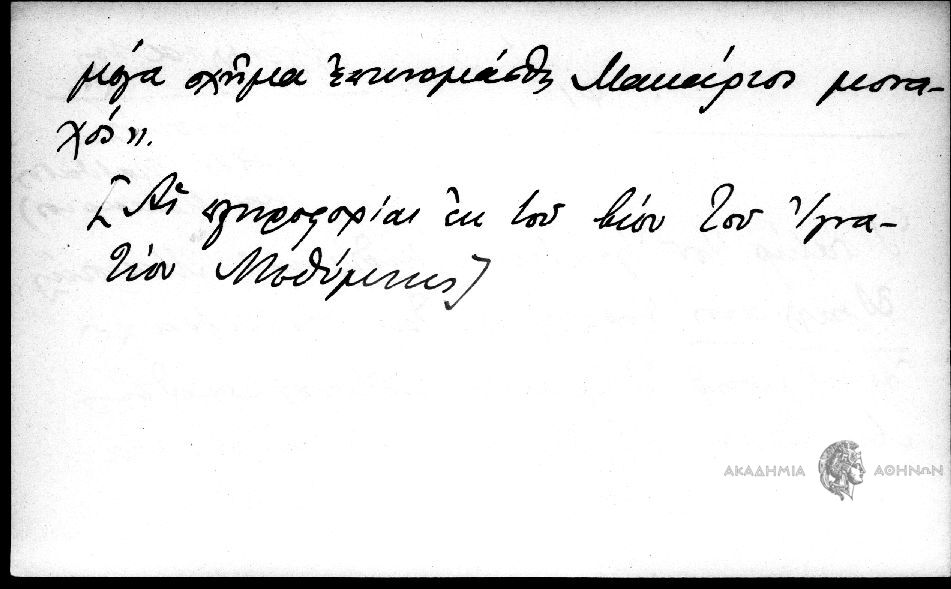 μέγα σχῆμα ἐπωνομάσθη Μακάριος μονα-
χός».
[Αἱ πληροφορίαι ἐκ τοῦ βίου τοῦ Ἰγνα-
τίου Μηθύμνης]
ΑΚΑΔΗΜΙΑ ΑΘΗΝΩΝ